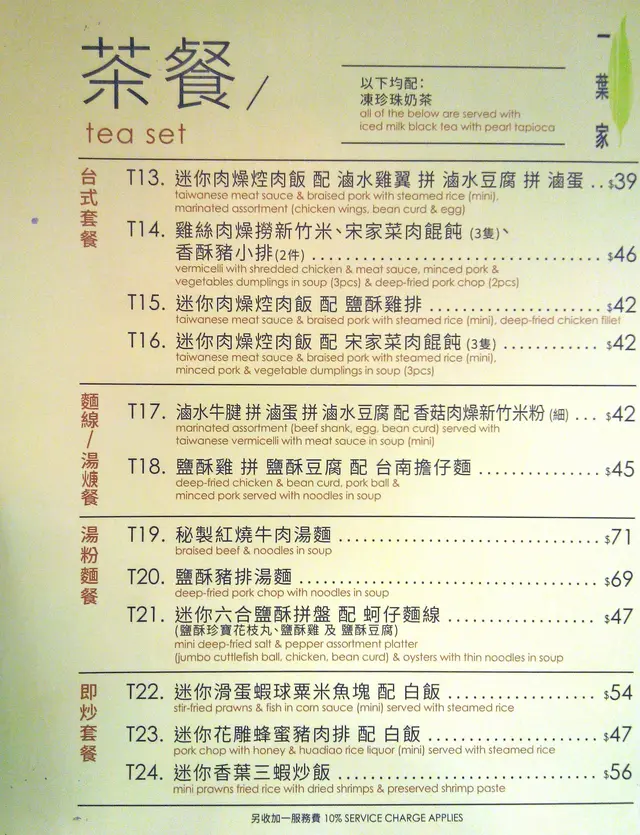 茶餐/
tea set
以下均配：
凍珍珠奶茶
all of the below are served with
iced milk black tea with pearl tapioca
一葉家
台式套餐
T13. 迷你肉燥焢肉飯 配 滷水雞翼 拼 滷水豆腐 拼 滷蛋 ..$39
taiwanese meat sauce & braised pork with steamed rice (mini),
marinated assortment (chicken wings, bean curd & egg)
T14. 雞絲肉燥撈新竹米、宋家菜肉餛飩 (3隻)、
香酥豬小排(2件) ........................................ $46
vermicelli with shredded chicken & meat sauce, minced pork &
vegetables dumplings in soup (3pcs) & deep-fried pork chop (2pcs)
T15. 迷你肉燥焢肉飯 配 鹽酥雞排 ........................ $42
taiwanese meat sauce & braised pork with steamed rice (mini), deep-fried chicken fillet
T16. 迷你肉燥焢肉飯 配 宋家菜肉餛飩 (3隻) ............. $42
taiwanese meat sauce & braised pork with steamed rice (mini),
minced pork & vegetable dumplings in soup (3pcs)
麵線/湯爊餐
T17. 滷水牛腱 拼 滷蛋 拼 滷水豆腐 配 香菇肉燥新竹米粉 (細) ... $42
marinated assortment (beef shank, egg, bean curd) served with
taiwanese vermicelli with meat sauce in soup (mini)
T18. 鹽酥雞 拼 鹽酥豆腐 配 台南擔仔麵 ................. $45
deep-fried chicken & bean curd, pork ball &
minced pork served with noodles in soup
湯粉麵餐
T19. 秘製紅燒牛肉湯麵 ................................... $71
braised beef & noodles in soup
T20. 鹽酥豬排湯麵 ........................................ $69
deep-fried pork chop with noodles in soup
T21. 迷你六合鹽酥拼盤 配 蚵仔麵線 ..................... $47
(鹽酥珍寶花枝丸、鹽酥雞 及 鹽酥豆腐)
mini deep-fried salt & pepper assortment platter
(jumbo cuttlefish ball, chicken, bean curd) & oysters with thin noodles in soup
即炒套餐
T22. 迷你滑蛋蝦球粟米魚塊 配 白飯 ..................... $54
stir-fried prawns & fish in corn sauce (mini) served with steamed rice
T23. 迷你花雕蜂蜜豬肉排 配 白飯 ........................ $47
pork chop with honey & huadiao rice liquor (mini) served with steamed rice
T24. 迷你香葉三蝦炒飯 ................................... $56
mini prawns fried rice with dried shrimps & preserved shrimp paste
另收加一服務費 10% SERVICE CHARGE APPLIES